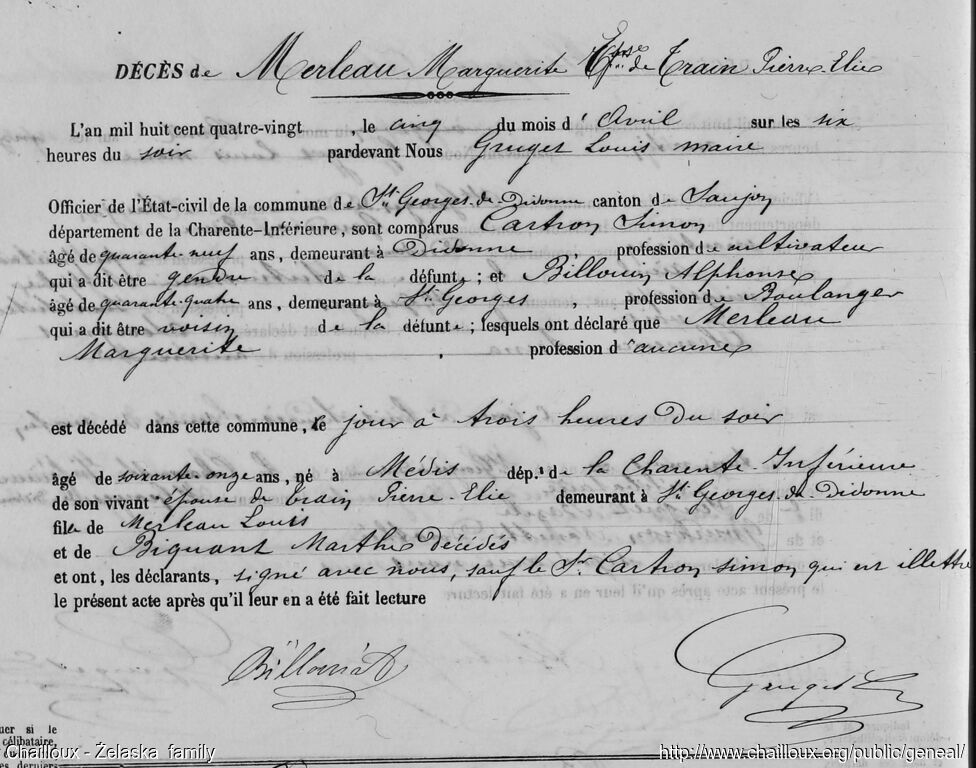 DÉCÈS de Merleau Marguerite Epse de Train Pierre-Elie
L'an mil huit cent quatre-vingt , le cinq du mois d'Avril sur les six
heures du soir pardevant Nous Gruget Louis maire
Officier de l'État-civil de la commune de St Georges-de-Didonne canton de Saujon
département de la Charente-Inférieure, sont comparus Cartron Simon
âgé de quarante-neuf ans, demeurant à Didonne , profession de cultivateur
qui a dit être gendre de la défunte ; et Billouin Alphonse
âgé de quarante-quatre ans, demeurant à St Georges , profession de Boulanger
qui a dit être voisin de la défunte ; lesquels ont déclaré que Merleau
Marguerite , profession d'aucune
est décédé dans cette commune, ce jour à trois heures du soir
âgé de soixante-onze ans, né à Médis dép.t de la Charente-Inférieure
de son vivant épouse de Train Pierre-Elie demeurant à St Georges-de-Didonne
fille de Merleau Louis
et de Biguant Marthe décédés
et ont, les déclarants, signé avec nous, sauf le Sr. Cartron Simon qui est illettré
le présent acte après qu'il leur en a été fait lecture
Billouin A
Gruget L
uer si le
célibataire,
es dernier-
Chailloux - Żelaska family
http://www.chailloux.org/public/geneal/